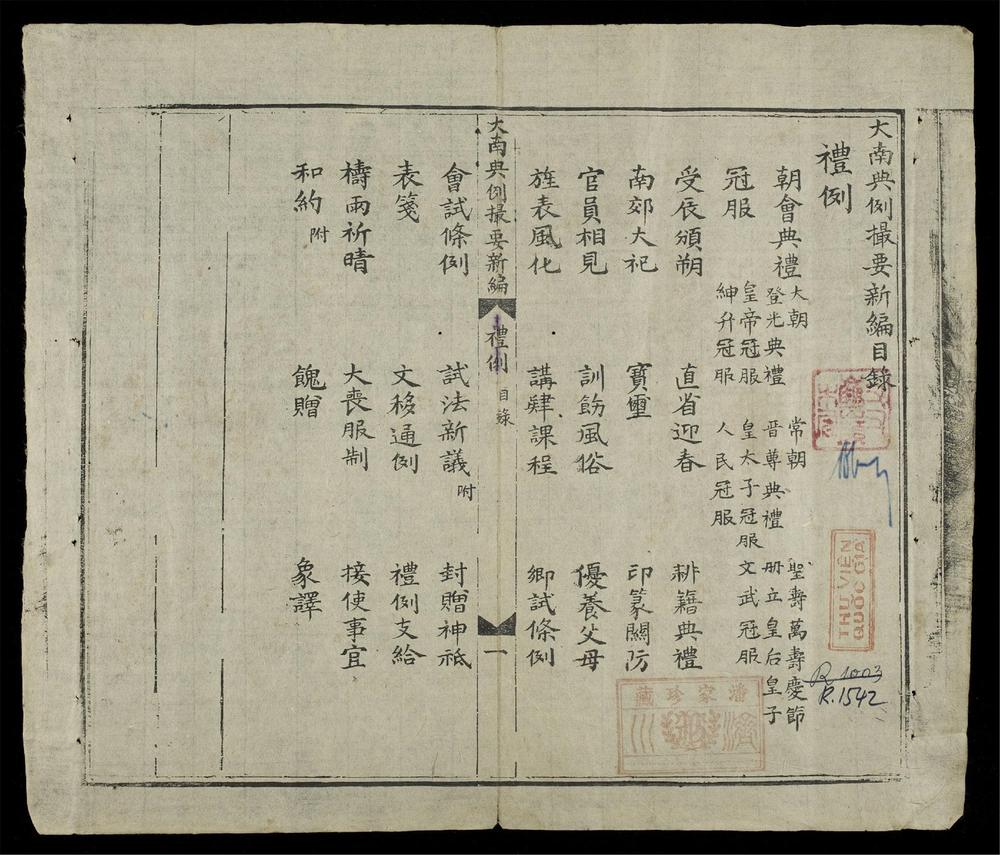 大南典例撮要新編目錄
禮例
朝會典禮 大朝 常朝 聖壽萬壽慶節
登光典禮 晋尊典禮 册立皇后皇子
冠服 皇帝冠服 皇太子冠服 文武冠服
紳弁冠服 人民冠服
受辰頒朔 直省迎春 耕籍典禮
南郊大祀 寶璽 印篆關防
官員相見 訓飭風俗 優養父母
旌表風化 講肄課程 鄉試條例
大南典例撮要新編 禮例 目錄 一
會試條例 試法新議 附 封贈神祇
表箋 文移通例 禮例支給
禱雨祈晴 大喪服制 接使事宜
和約 附 餽贈 象譯
THƯ VIỆN
QUỐC GIA
R.1003
R.1542
潘家珍藏